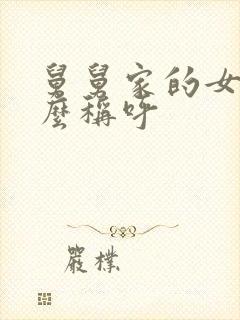 舅舅家的女
麼稱呼
嚴樸